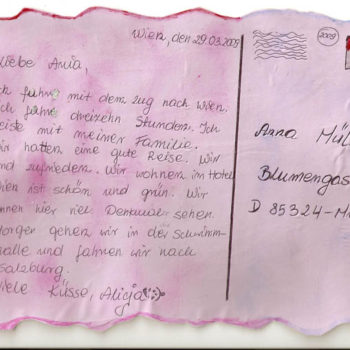 Wien, den 29.03.2009
2009
iebe Ania,
ch fuhr mit dem Zug nach Wien.
ch fuhr dreizehn Stunden. Ich
eiste mit meiner Familie.
ir hatten eine gute Reise. Wir
ind zufrieden. Wir wohnen im Hotel
ien ist schön und grün. Wir
nnen hier viel Denkmale sehen.
orgen gehen wir in der Schwimm-
alle und fahren wir nach
alzburg.
iele Küsse, Alicja
Anna Mül
Blumengas
D 85324-M